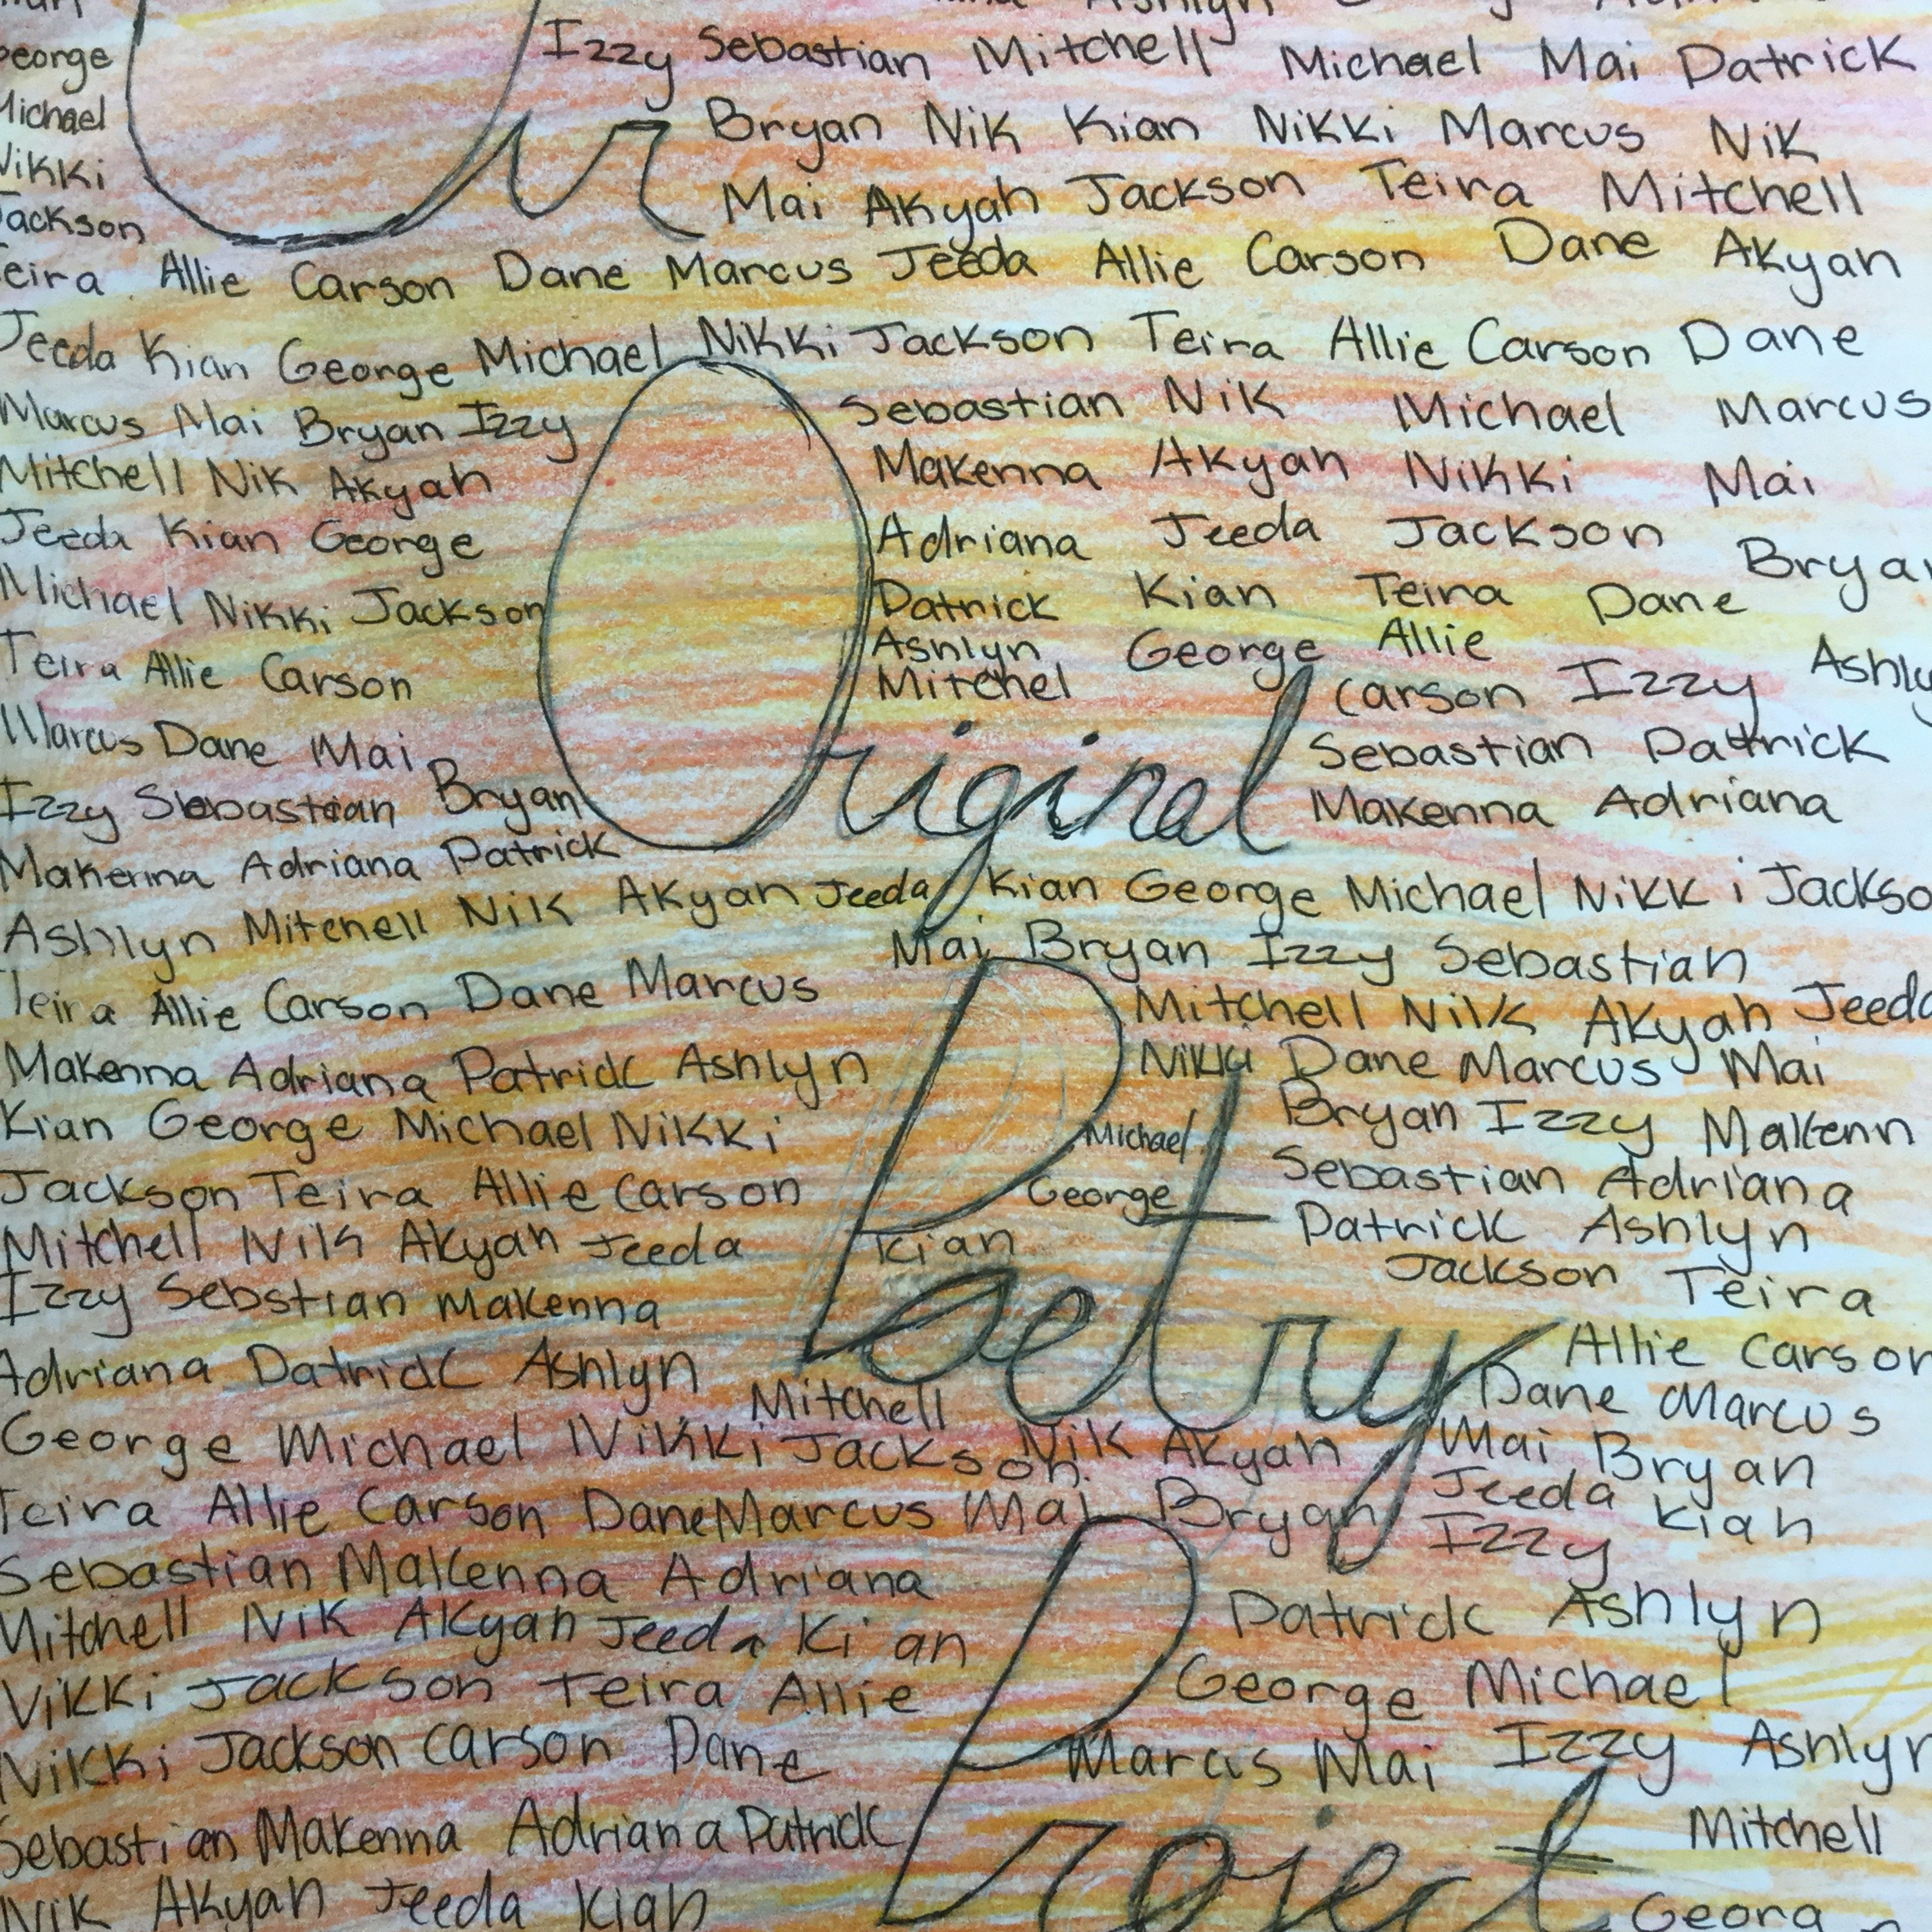 George
Izzy Sebastian Mitchell Michael Mai Patrick
Michael
Bryan Nik Kian Nikki Marcus Nik
Nikki
Mai Akyah Jackson Teira Mitchell
Jackson
ur
Teira Allie Carson Dane Marcus Jeeda Allie Carson Dane Akyah
Jeeda Kian George Michael Nikki Jackson Teira Allie Carson Dane
Marcus Mai Bryan Izzy Sebastian Nik Michael Marcus
Mitchell Nik Akyah Makenna Akyah Nikki Mai
Jeeda Kian George Adriana Jeeda Jackson Bryan
Michael Nikki Jackson Patrick Kian Teira Dane
Ashlyn George Allie Ashly
Teira Allie Carson Mitchel Carson Izzy
Original
Marcus Dane Mai Sebastian Patrick
Izzy Sebastian Bryan Makenna Adriana
Makenna Adriana Patrick
Ashlyn Mitchell Nik Akyah Jeeda Kian George Michael Nikki Jackso
Mai Bryan Izzy Sebastian
Teira Allie Carson Dane Marcus Mitchell Nik Akyah Jeeda
Makenna Adriana Patrick Ashlyn Nikki Dane Marcus Mai
Kian George Michael Nikki Michael Bryan Izzy Makenn
Jackson Teira Allie Carson George Sebastian Adriana
Mitchell Nik Akyah Jeeda Kian Patrick Ashlyn
Izzy Sebstian Makenna Jackson Teira
Poetry
Adriana Patrick Ashlyn Allie Carson
Mitchell Dane Marcus
George Michael Nikki Jackson Nik Akyah Mai Bryan
Jeeda Kian
Teira Allie Carson Dane Marcus Mai Bryan Izzy
Sebastian Makenna Adriana
Mitchell Nik Akyah Jeeda Kian Patrick Ashlyn
Nikki Jackson Teira Allie George Michael
Nikki Jackson Carson Dane Marcus Mai Izzy Ashlyn
Sebastian Makenna Adriana Patrick Mitchell
Project
Nik Akyah Jeeda Kian Georg